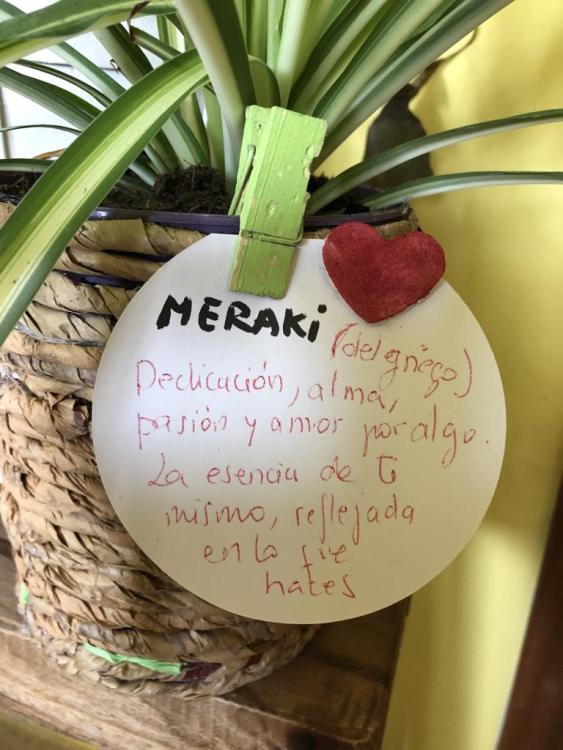 MERAKi
(del griego)
Dedicación, alma,
pasión y amor por algo.
La esencia de ti
mismo, reflejada
en lo que
haces